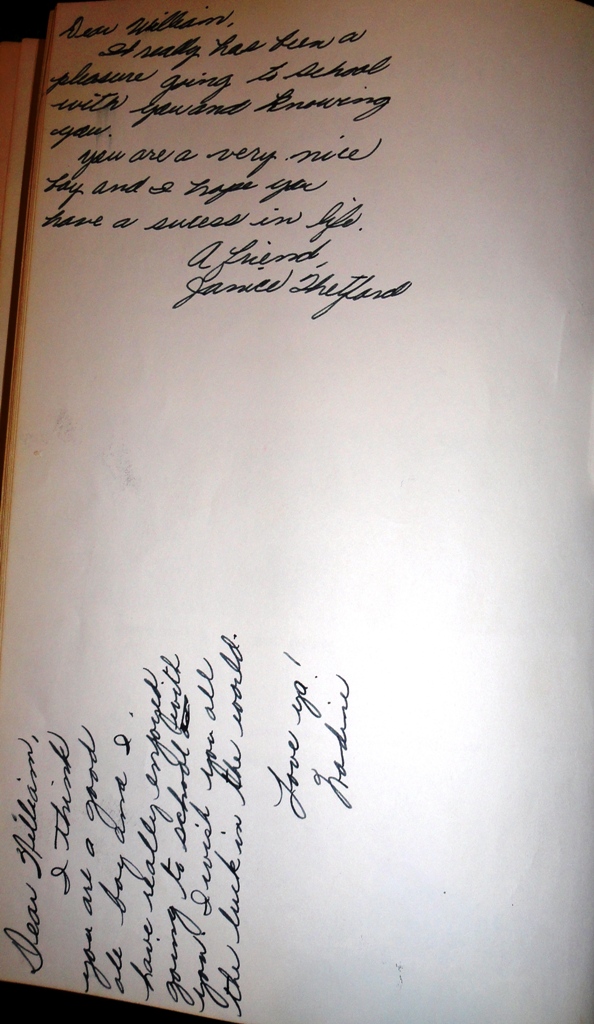 Dear William,
It really has been a
pleasure going to school
with you and knowing
you.
you are a very nice
boy and I hope you
have a sucess in life.
A friend,
Janice Thetford
Dear William,
I think
you are a good
ole boy and I
have really enjoyed
going to school with
you I wish you all
the luck in the world.
Love ya!
Nadine